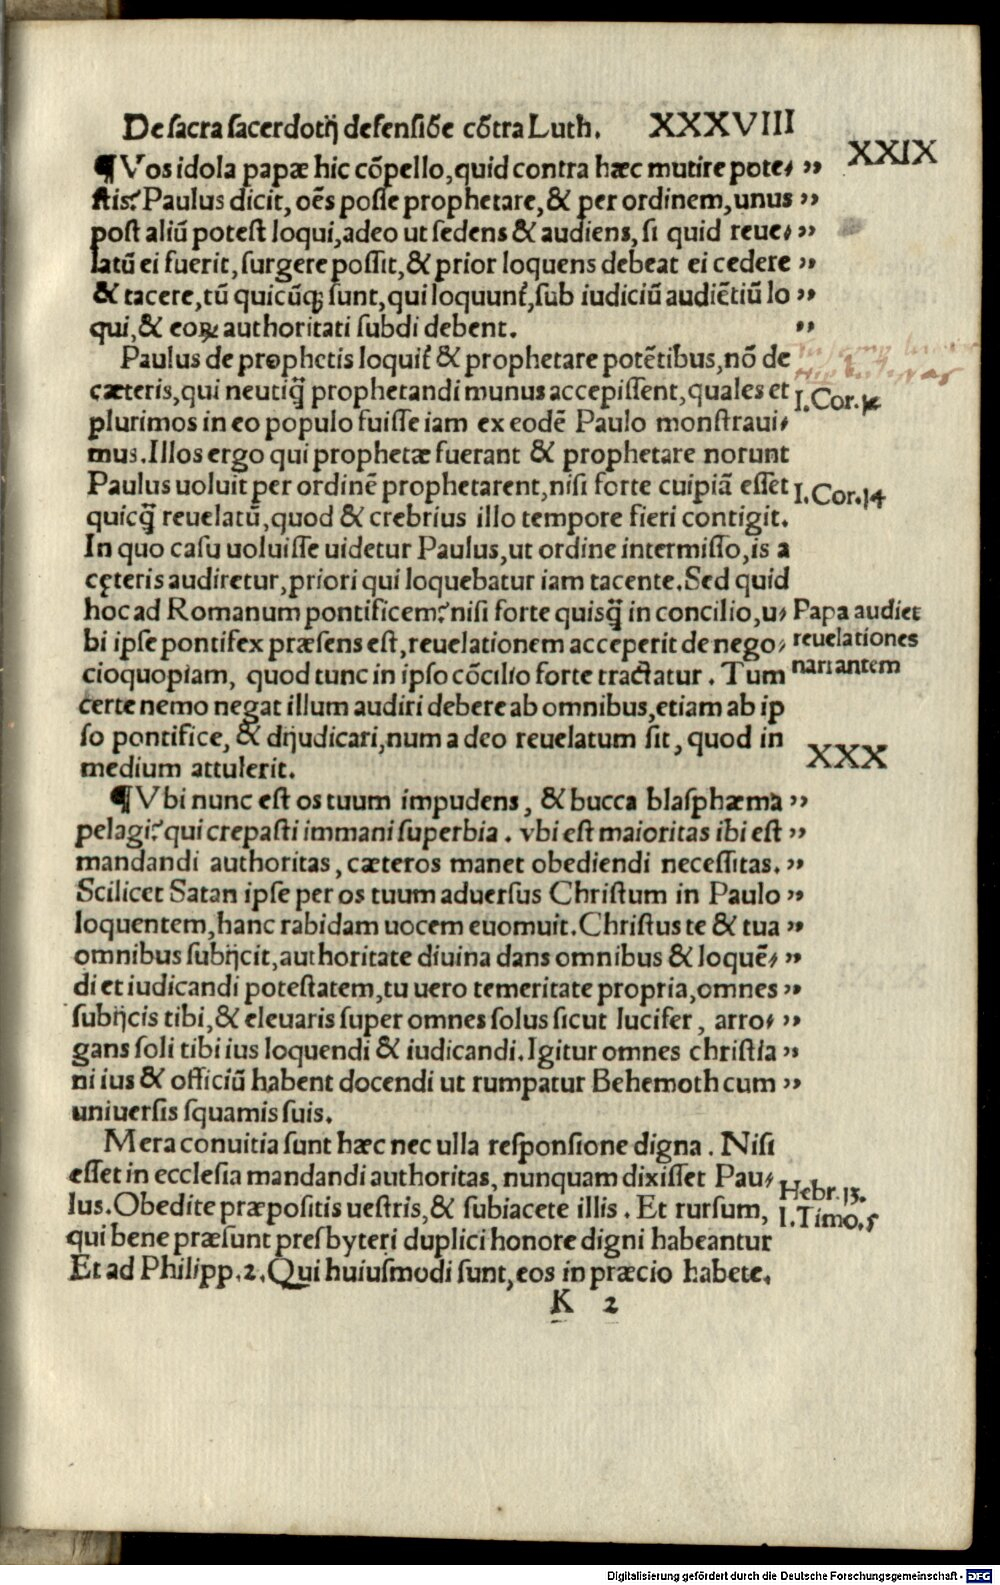 De sacra sacerdotij defensiōe cōtra Luth. XXXVIII
XXIX
¶Vos idola papæ hic cōpello,quid contra hæc mutire pote⸗ ,,
stis? Paulus dicit, oēs posse prophetare,& per ordinem,unus ,,
post aliū potest loqui,adeo ut sedens & audiens, si quid reue⸗ ,,
latū ei fuerit, surgere possit,& prior loquens debeat ei cedere ,,
& tacere,tū quicūqꝫ sunt,qui loquunt᷑,sub iudiciū audiētiū lo ,,
qui,& eoꝝ authoritati subdi debent. ,,
Paulus de prophetis loquit᷑ & prophetare potētibus,nō de
cæteris,qui neutiq̃ prophetandi munus accepissent,quales et
I.Cor.14
plurimos in eo populo fuisse iam ex eodē Paulo monstraui⸗
mus.Illos ergo qui prophetæ fuerant & prophetare norunt
Paulus uoluit per ordinē prophetarent,nisi forte cuipiā esset
I.Cor.14
quicq̃ reuelatū,quod & crebrius illo tempore fieri contigit.
In quo casu uoluisse uidetur Paulus,ut ordine intermisso,is a
cęteris audiretur,priori qui loquebatur iam tacente.Sed quid
hoc ad Romanum pontificem? nisi forte quisq̃ in concilio,u⸗
Papa audiet
bi ipse pontifex præsens est,reuelationem acceperit de nego⸗
reuelationes
cioquopiam, quod tunc in ipso cōcilio forte tractatur. Tum
narrantem
certe nemo negat illum audiri debere ab omnibus,etiam ab ip
so pontifice, & dijudicari,num a deo reuelatum sit, quod in
medium attulerit.
XXX
¶Vbi nunc est os tuum impudens, & bucca blasphæma ,,
pelagi? qui crepasti immani superbia. vbi est maioritas ibi est ,,
mandandi authoritas, cæteros manet obediendi necessitas. ,,
Scilicet Satan ipse per os tuum aduersus Christum in Paulo ,,
loquentem,hanc rabidam uocem euomuit.Christus te & tua ,,
omnibus subijcit,authoritate diuina dans omnibus & loquē⸗ ,,
di et iudicandi potestatem,tu uero temeritate propria,omnes ,,
subijcis tibi,& eleuaris super omnes solus sicut lucifer, arro⸗ ,,
gans soli tibi ius loquendi & iudicandi.Igitur omnes christia ,,
ni ius & officiū habent docendi ut rumpatur Behemoth cum ,,
uniuersis squamis suis.
Mera conuitia sunt hæc nec ulla responsione digna. Nisi
esset in ecclesia mandandi authoritas, nunquam dixisset Pau⸗
Hebr.13.
lus.Obedite præpositis uestris,& subiacete illis. Et rursum,
I.Timo.5
qui bene præsunt presbyteri duplici honore digni habeantur
Et ad Philipp.2.Qui huiusmodi sunt,eos in præcio habete.
K 2
Digitalisierung gefördert durch die Deutsche Forschungsgemeinschaft - DFG